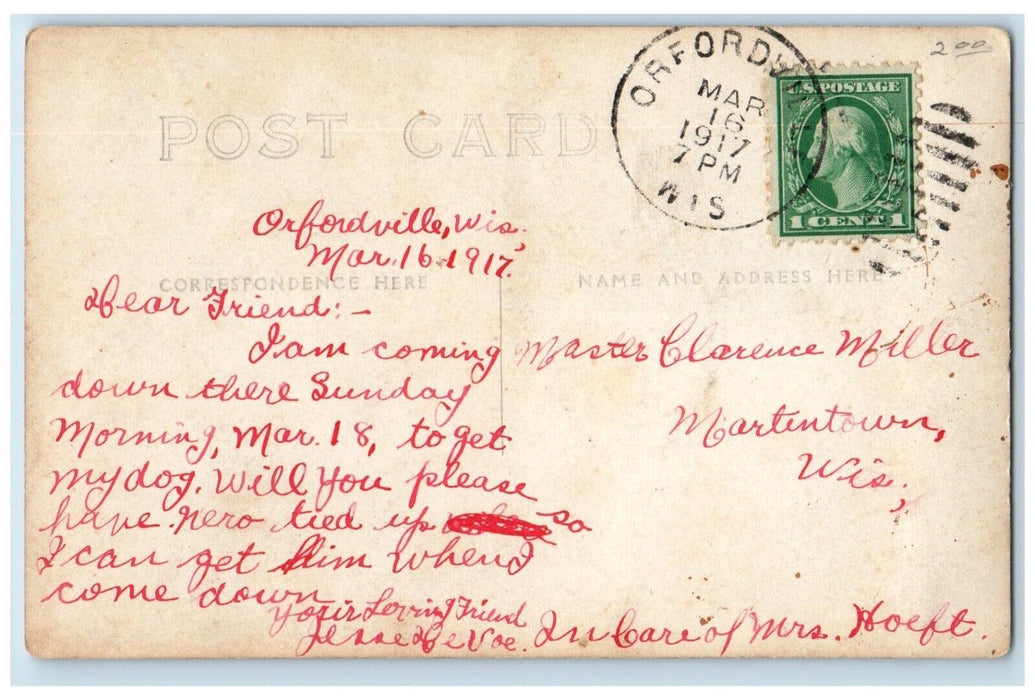 2 00
ORFORDVILLE
MAR
16
1917
7 PM
WIS
U.S. POSTAGE
1 CENT 1
POST CARD
Orfordville, Wis.,
Mar. 16-1917.
CORRESPONDENCE HERE
NAME AND ADDRESS HERE
Dear Friend:-
I am coming
down there Sunday
Morning, Mar. 18, to get
my dog. Will you please
have Nero tied up so
I can get him when I
come down
Your Loving Friend
Jesse De Voe.
Master Clarence Miller
Martintown,
Wis.,
In Care of Mrs. Hoeft.